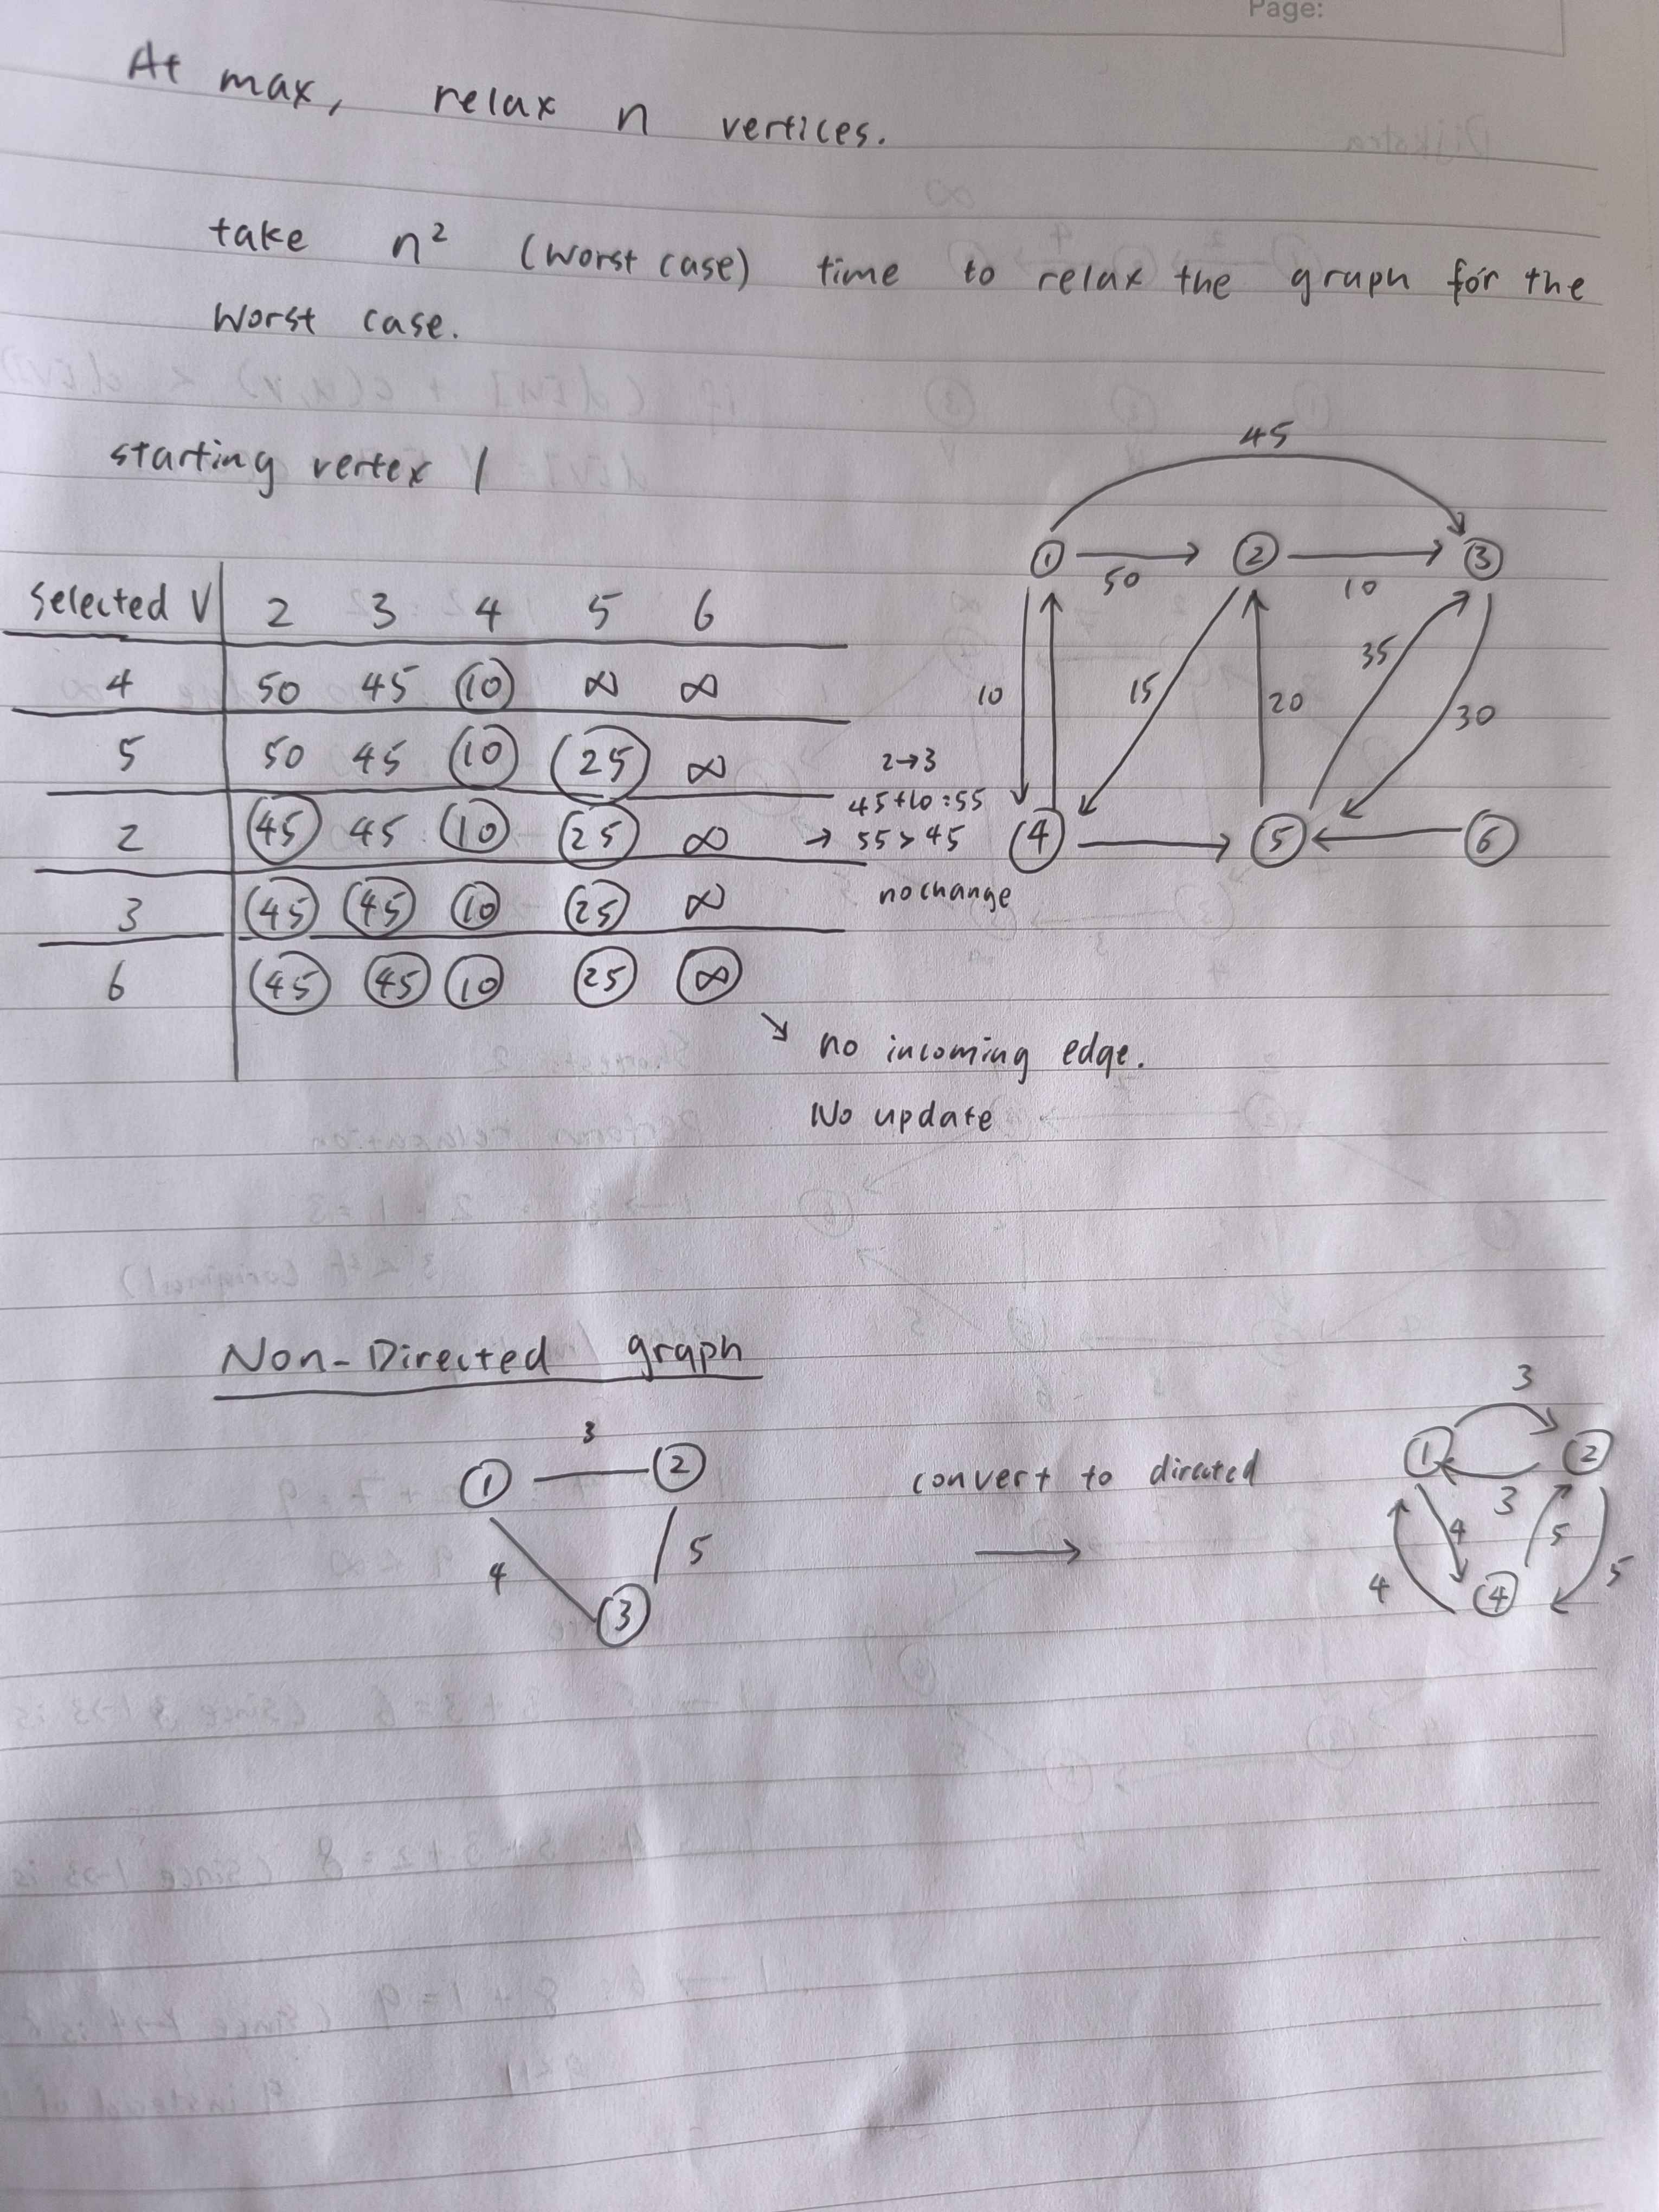 Page:
At max, relax n vertices.
take n² (worst case) time to relax the graph for the
worst case.
starting vertex 1
Selected V 2 3 4 5 6
4 50 45 10 ∞ ∞
5 50 45 10 25 ∞
2 45 45 10 25 ∞
3 45 45 10 25 ∞
6 45 45 10 25 ∞
2→3
45+10=55
→ 55>45
no change
↘ no incoming edge.
No update
45
1 50 2 10 3
10 15 20 35 30
4 5 6
Non-Directed graph
3
1 2
4 5
3
convert to directed
→
3
1 2
3
4 4 5 5
4